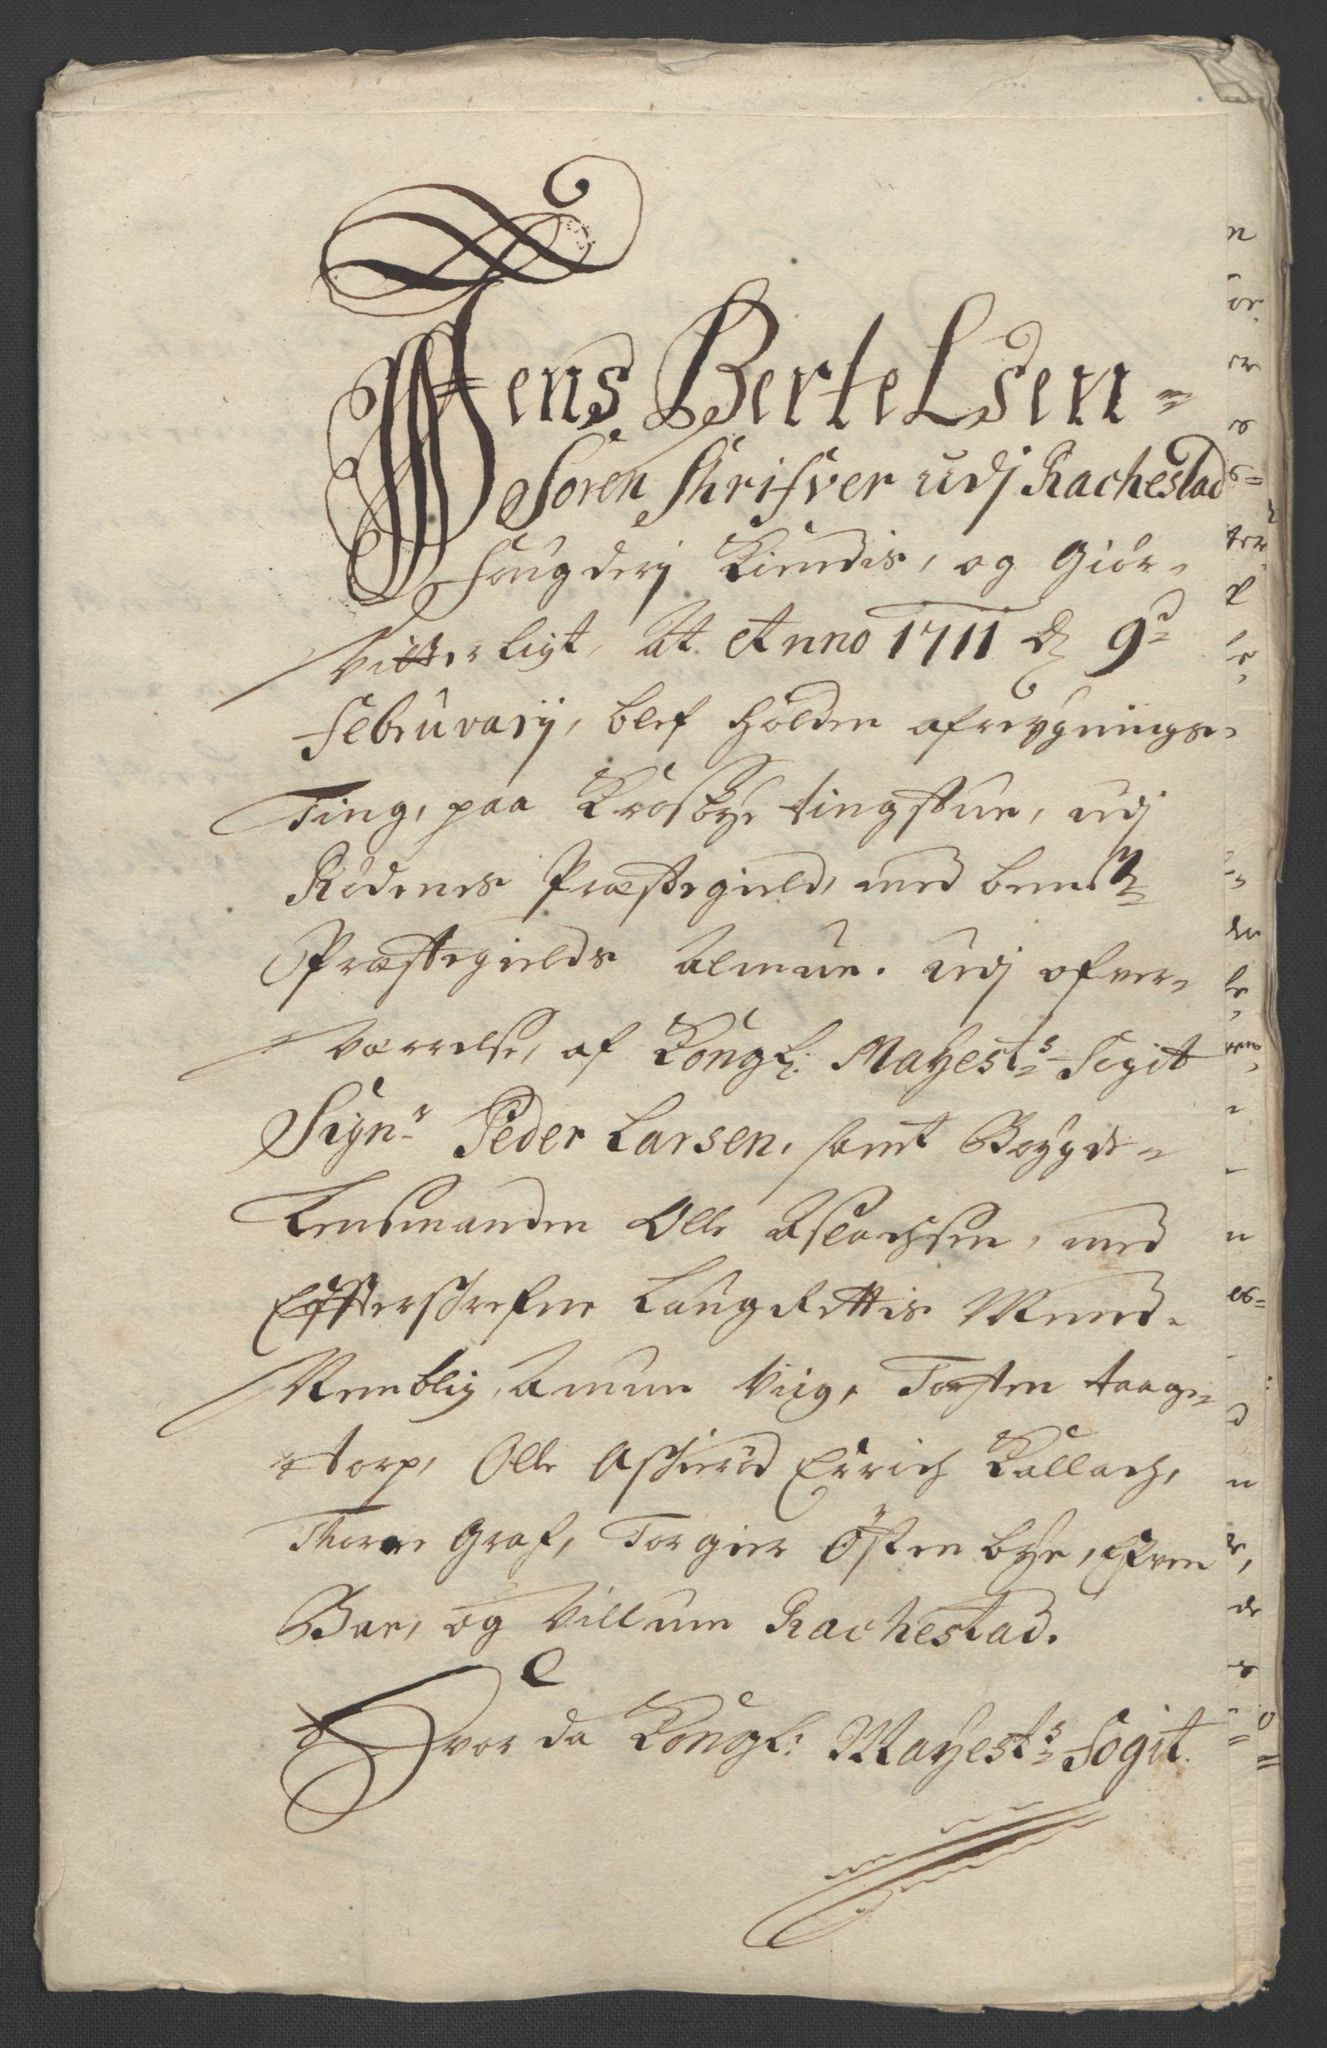 Jens Bertelsen
Soren Skrifver udj Rachestad
Fougderj Kiendis, og Giør-
Vitterligt, At Anno 1711 d 9d
Februvarij, blef holden afreygnings-
Ting, paa Krosbye tingstue, udj
Rødenes Præstegield, med bemte
Præstegields Almue. udj ofver-
Værrelse, af Kongl: Mayests Fogit
Sign.r Peder Larsen, samt Boygde-
Lensmanden Olle Aslachsen, med
Effterskrefne Laugrettis Mend-
Nemblig, Amun Viig, Torsten taage-
torp, Olle Askierød Errich Kallach,
Thore Graf, Torgier Østenbye, Efven
Bae, og Villum Rachestad.
Hvor da Kongl: Mayests Fogit.